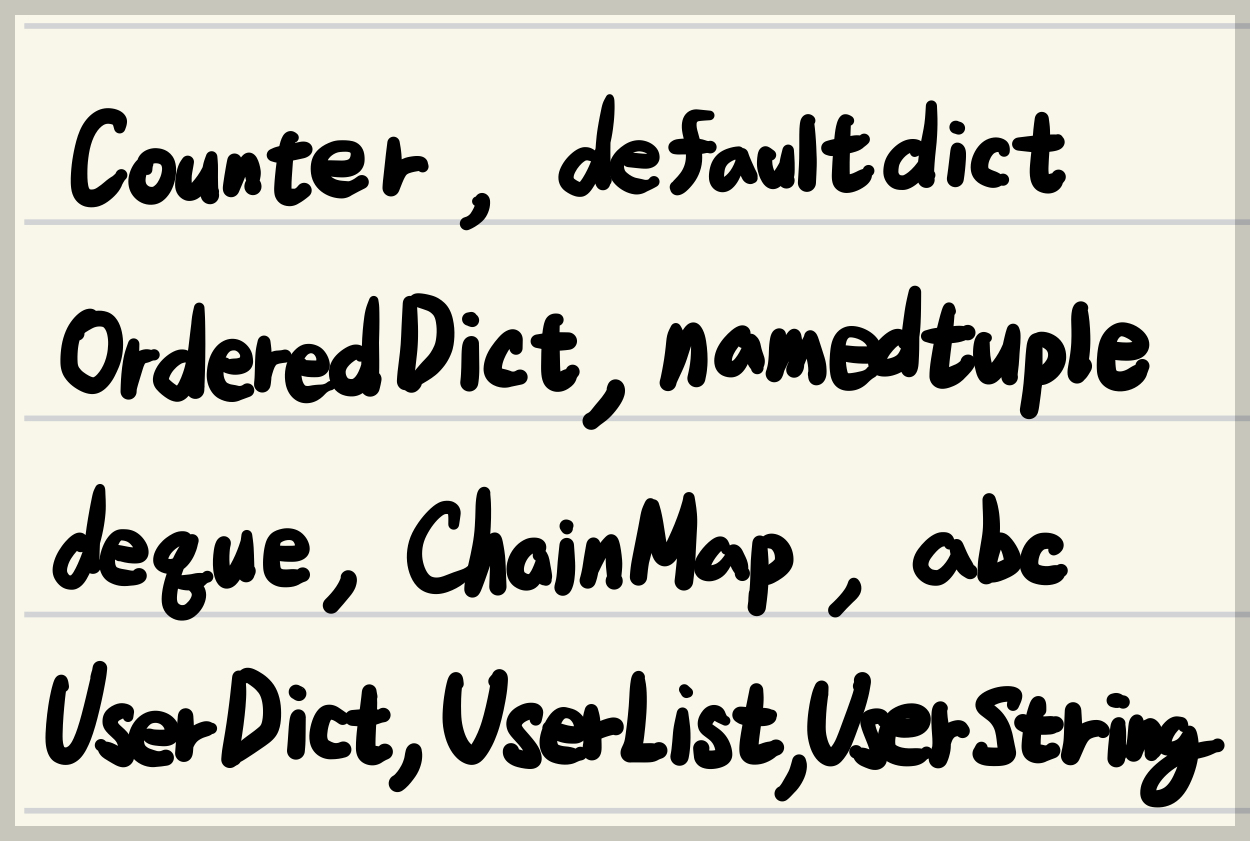 Counter, defaultdict
OrderedDict, namedtuple
deque, ChainMap, abc
UserDict, UserList, UserString